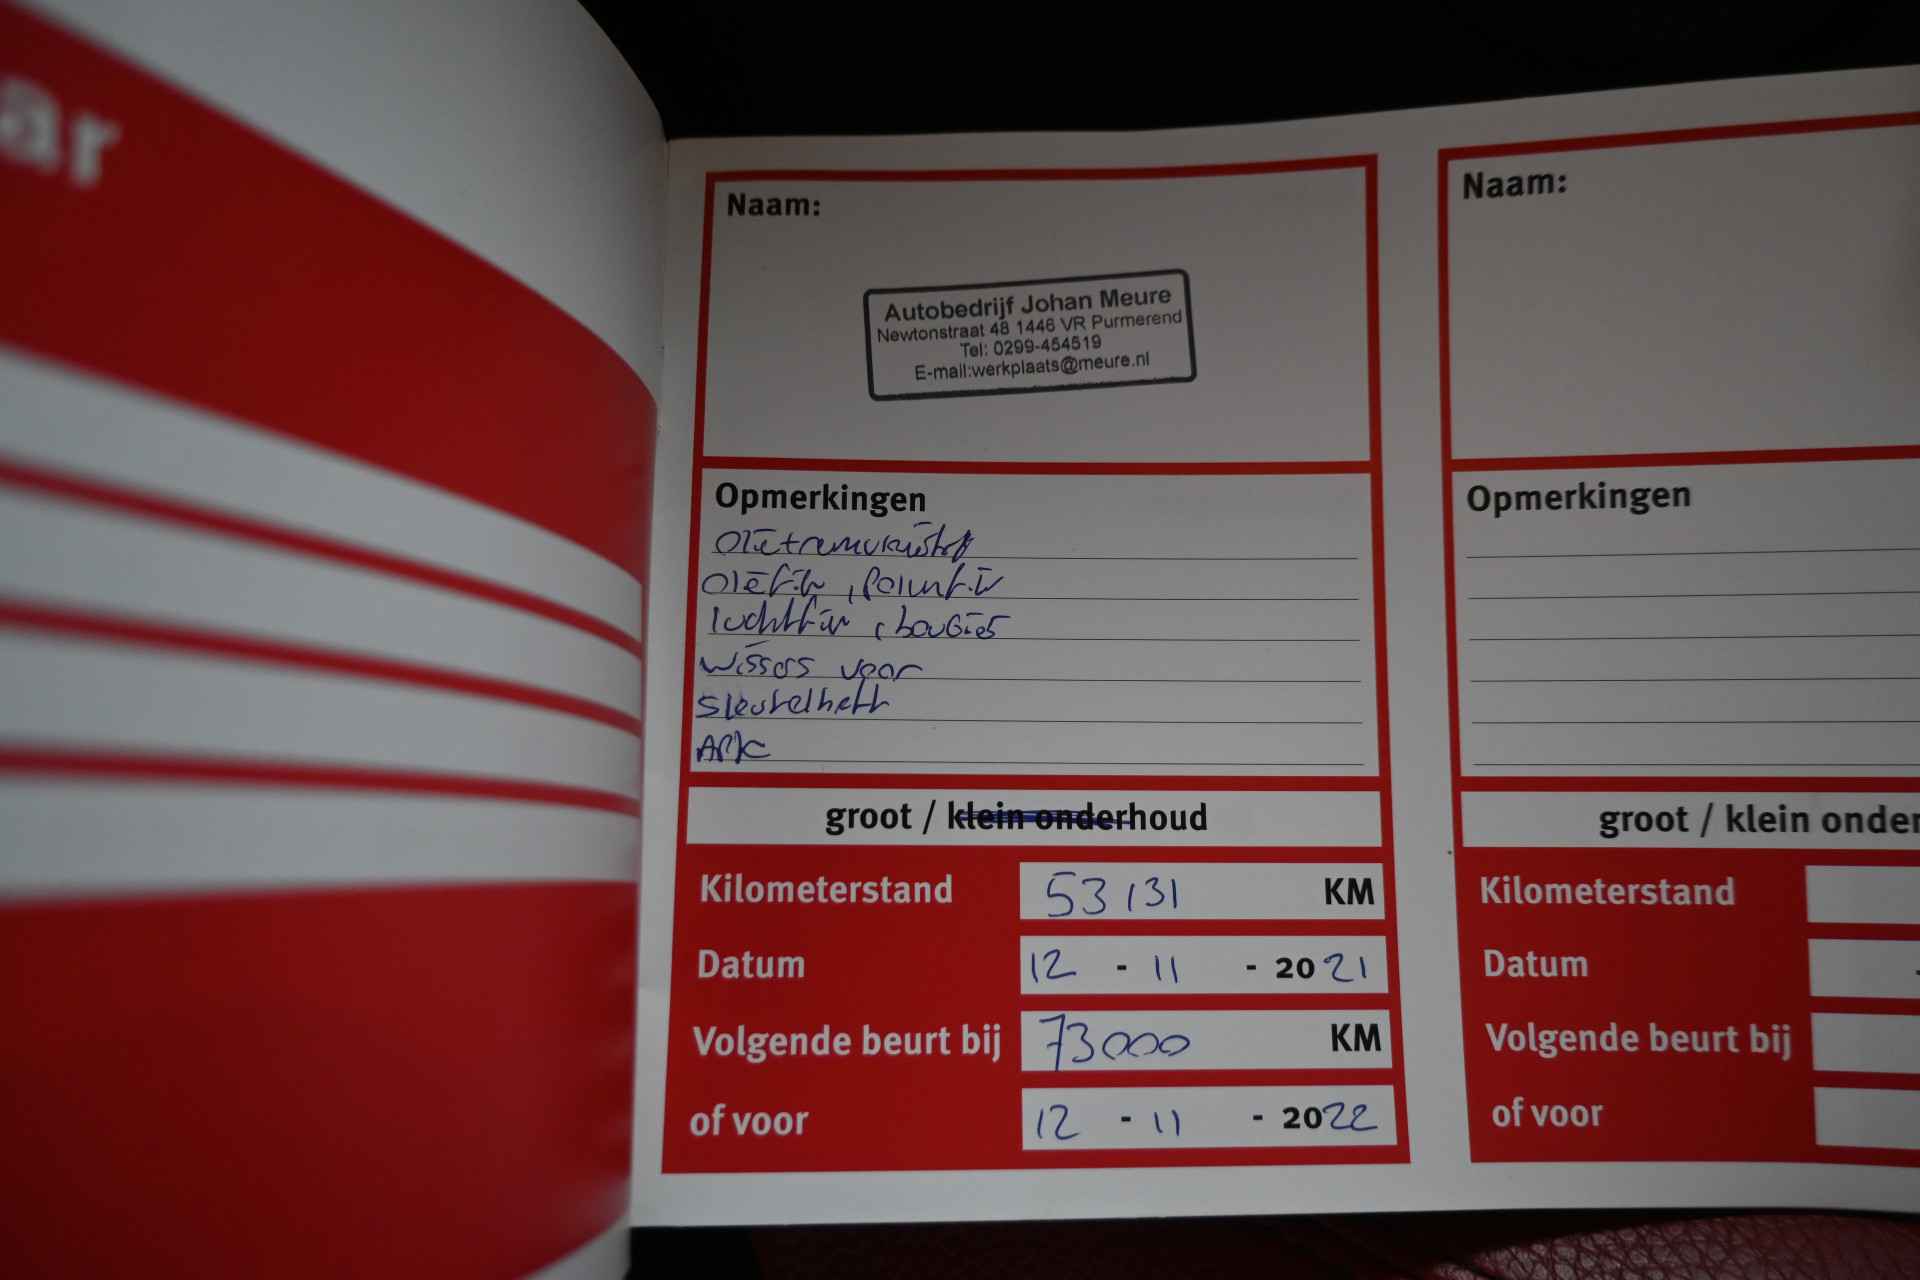 ar
Naam:
Autobedrijf Johan Meure
Newtonstraat 48 1446 VR Purmerend
Tel: 0299-454519
E-mail:werkplaats@meure.nl
Opmerkingen
luchtfilt , bougies
wissers voor
APK
groot / klein onderhoud
Kilometerstand 53131 KM
Datum 12 - 11 - 2021
Volgende beurt bij 73000 KM
of voor 12 - 11 - 2022
Naam:
Opmerkingen
groot / klein onder
Kilometerstand
Datum -
Volgende beurt bij
of voor